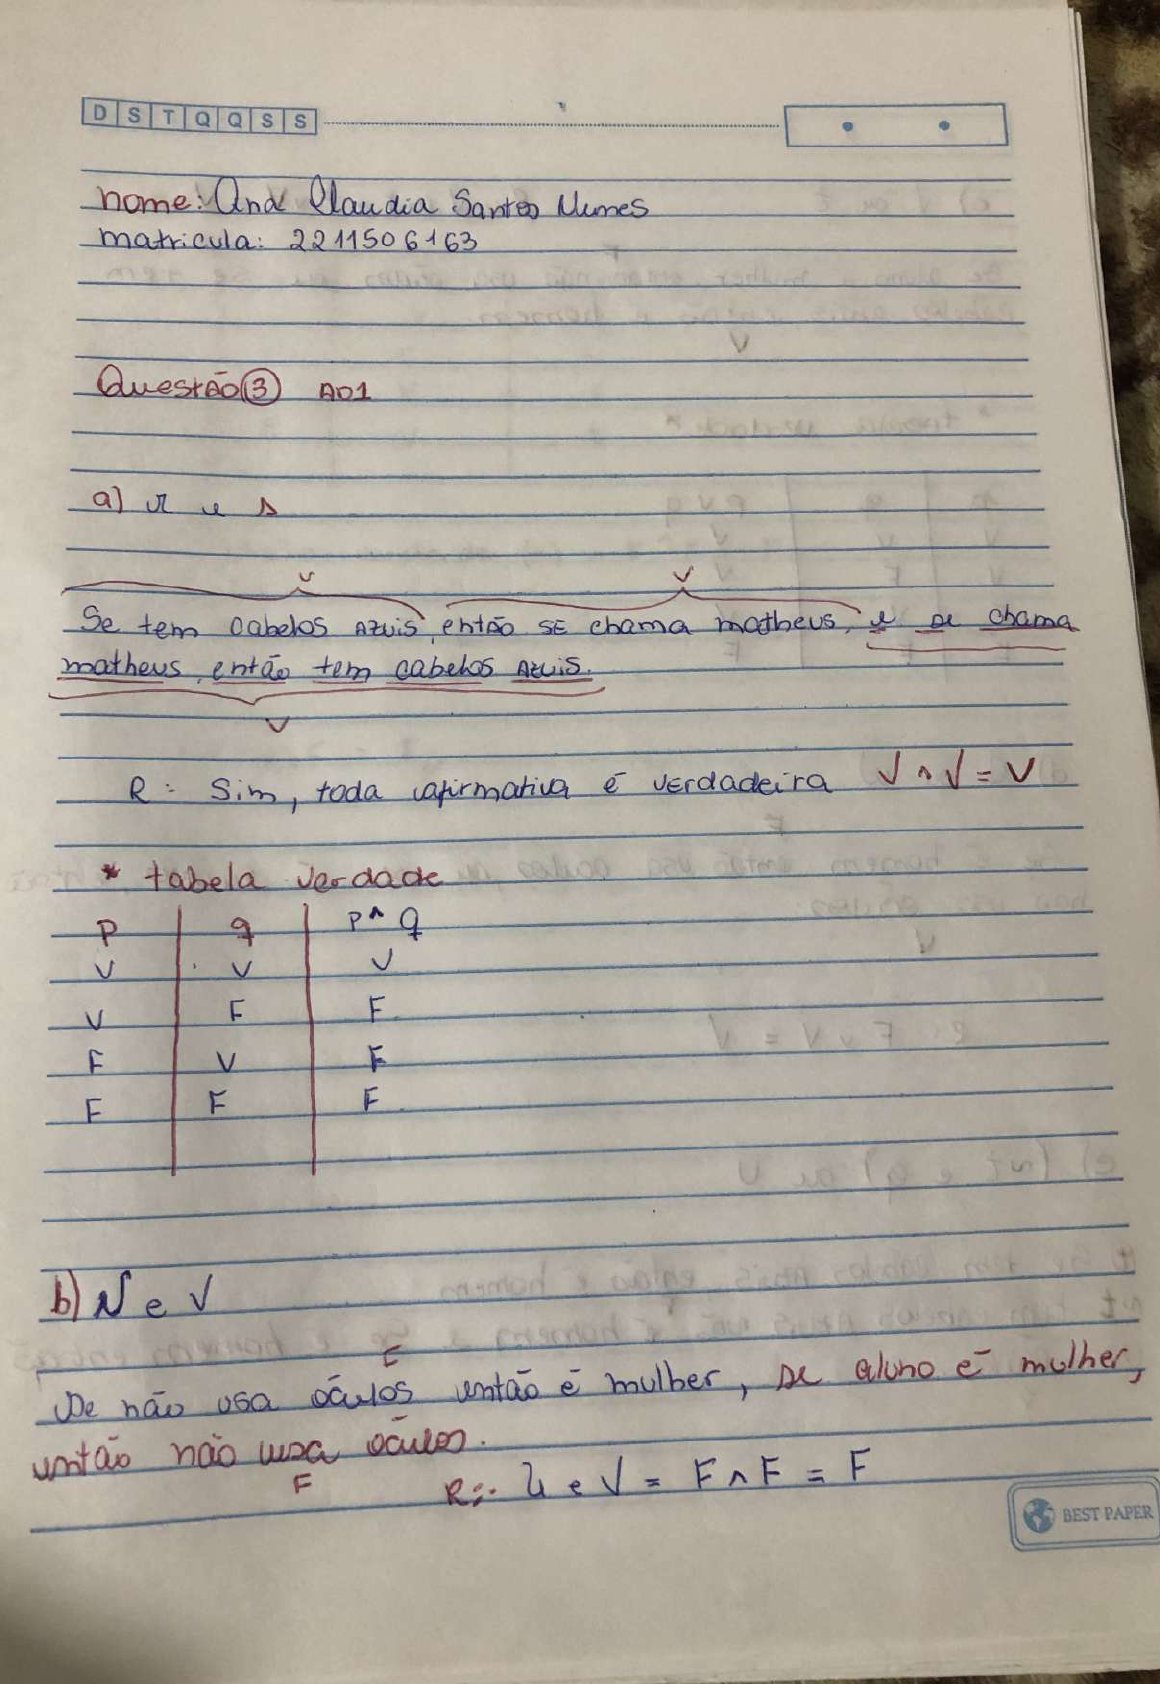 D S T Q Q S S
nome: Ana Claudia Santos Nunes
matricula: 2211506163
Questão 3 AO1
a) r e s
V V
Se tem cabelos Azuis, então SE chama matheus, e se chama
matheus, então tem cabelos Azuis.
V
R: Sim, toda afirmativa é verdadeira V ^ V = V
* tabela verdade
p q p ^ q
V V V
V F F
F V F
F F F
b) N e V
F
Se não usa óculos então é mulher, se aluno é mulher,
então não usa óculos.
F
R: U e V = F ^ F = F
BEST PAPER